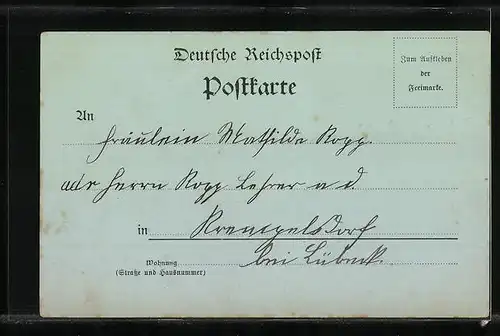 Deutsche Reichspost
Postkarte
Zum Aufkleben
der
Freimarke.
An
Fräulein Mathilde Kopp.
adr Herrn Kopp Lehrer a. d.
in Krempelsdorf
bei Lübeck.
Wohnung
(Straße und Hausnummer)